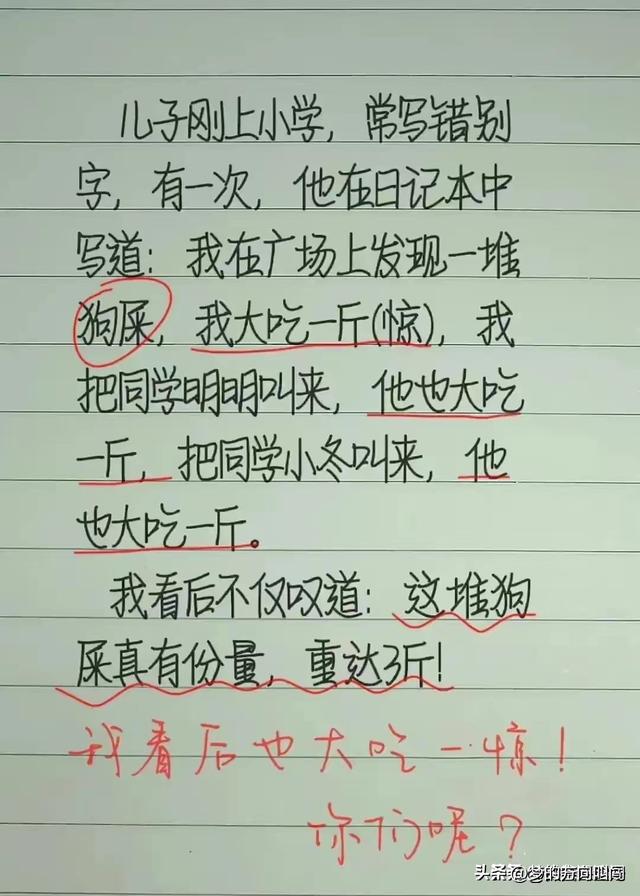 儿子刚上小学，常写错别
字，有一次，他在日记本中
写道：我在广场上发现一堆
狗屎，我大吃一斤(惊)，我
把同学明明叫来，他也大吃
一斤，把同学小冬叫来，他
也大吃一斤。
我看后不仅叹道：这堆狗
屎真有份量，重达3斤！
我看后也大吃一惊！
你们呢？
头条@梦的方向叫闯